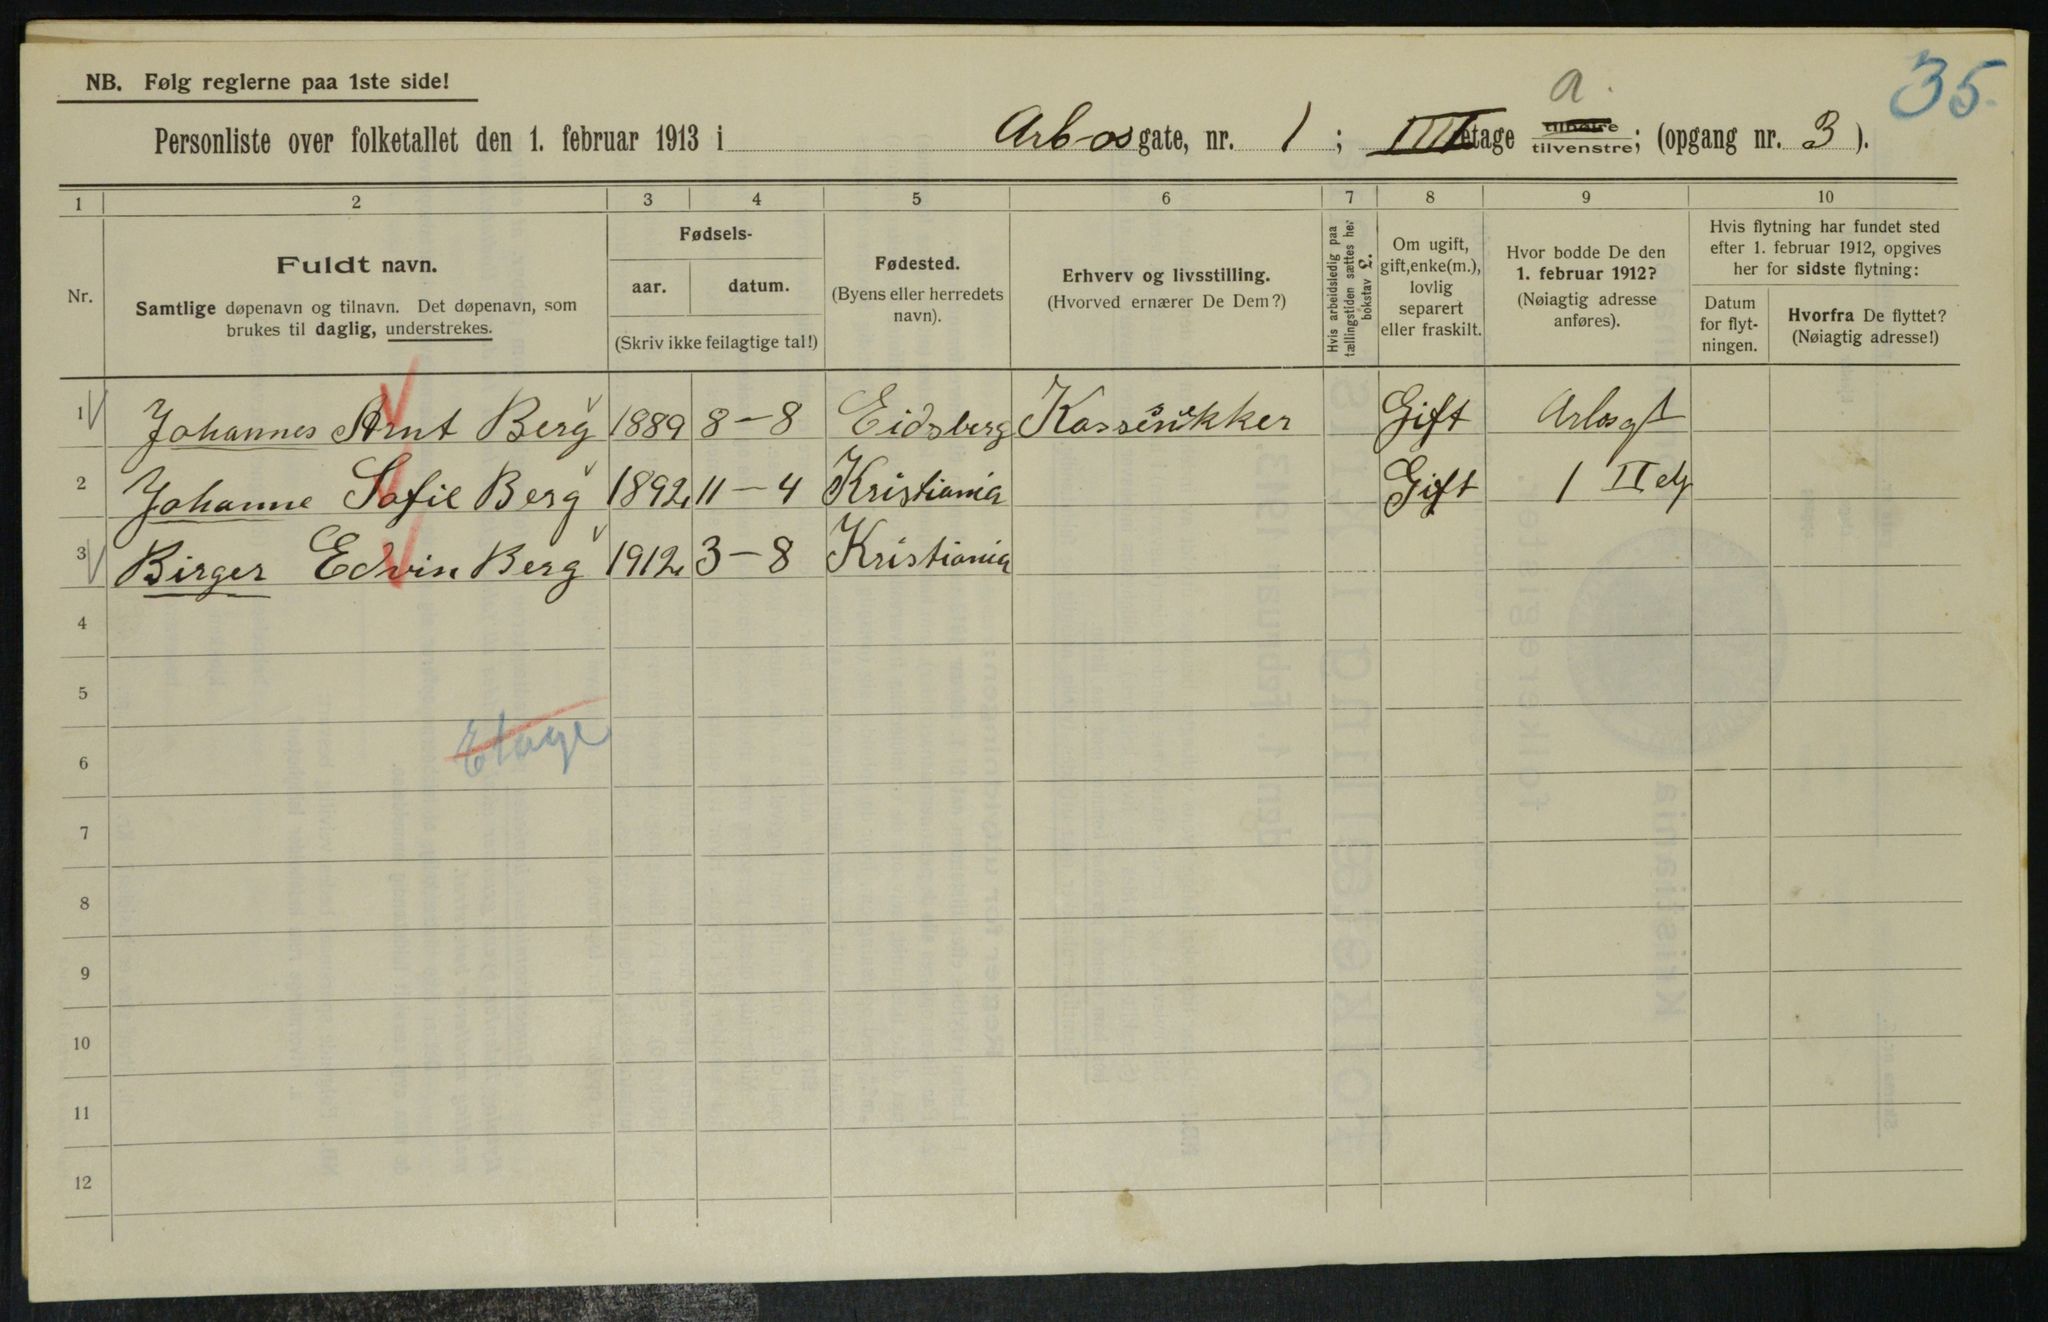 35.
NB. Følg reglerne paa 1ste side!
a.
Personliste over folketallet den 1. februar 1913 i Arbos gate, nr. 1 ; III etage tilhøire tilvenstre; (opgang nr. 3 ).
1 2 3 4 5 6 7 8 9 10
Nr.
Fuldt navn.
Samtlige døpenavn og tilnavn. Det døpenavn, som
brukes til daglig, understrekes.
Fødsels-
aar. datum.
(Skriv ikke feilagtige tal!)
Fødested.
(Byens eller herredets
navn).
Erhverv og livsstilling.
(Hvorved ernærer De Dem?)
Hvis arbeidsledig paa
tællingstiden sættes her
bokstav L.
Om ugift,
gift, enke(m.),
lovlig
separert
eller fraskilt.
Hvor bodde De den
1. februar 1912?
(Nøiagtig adresse
anføres).
Hvis flytning har fundet sted
efter 1. februar 1912, opgives
her for sidste flytning:
Datum
for flyt-
ningen.
Hvorfra De flyttet?
(Nøiagtig adresse!)
1 Johannes Arnt Berg 1889 8-8 Eidsberg Gift Arbosgt
2 Johanne Sofie Berg 1892 11-4 Kristiania Gift 1 II etg
3 Birger Edvin Berg 1912 3-8 Kristiania
4
5
Etage
6
7
8
9
10
11
12